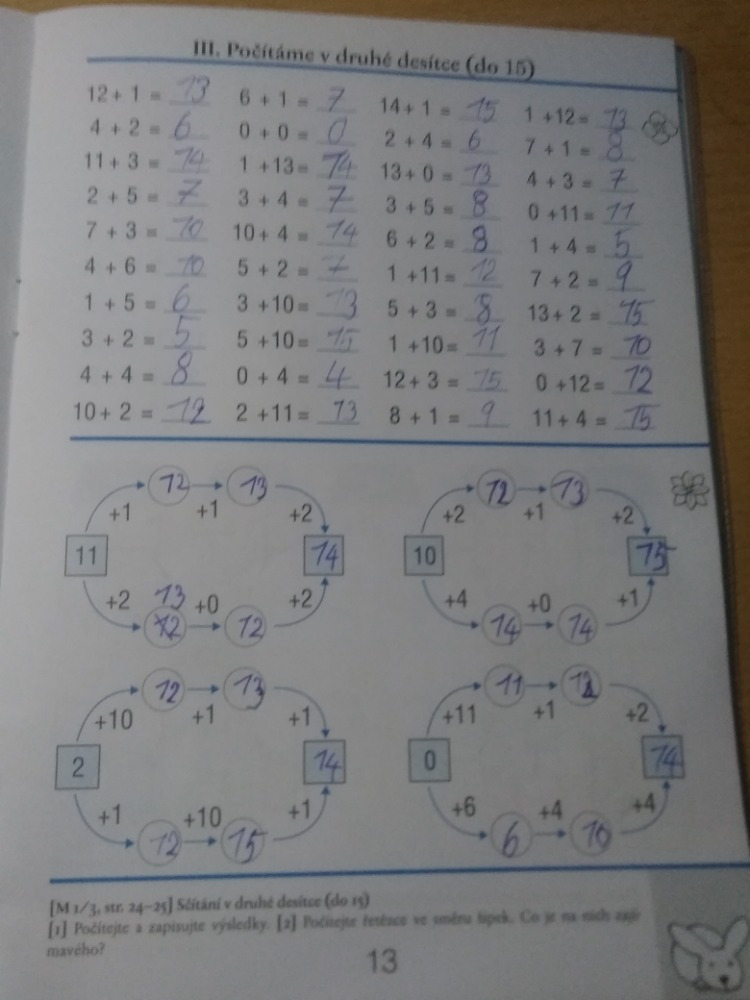 III. Počítáme v druhé desítce (do 15)
12 + 1 = 13 6 + 1 = 7 14 + 1 = 15 1 + 12 = 13
4 + 2 = 6 0 + 0 = 0 2 + 4 = 6 7 + 1 = 8
11 + 3 = 14 1 + 13 = 14 13 + 0 = 13 4 + 3 = 7
2 + 5 = 7 3 + 4 = 7 3 + 5 = 8 0 + 11 = 11
7 + 3 = 10 10 + 4 = 14 6 + 2 = 8 1 + 4 = 5
4 + 6 = 10 5 + 2 = 7 1 + 11 = 12 7 + 2 = 9
1 + 5 = 6 3 + 10 = 13 5 + 3 = 8 13 + 2 = 15
3 + 2 = 5 5 + 10 = 15 1 + 10 = 11 3 + 7 = 10
4 + 4 = 8 0 + 4 = 4 12 + 3 = 15 0 + 12 = 12
10 + 2 = 12 2 + 11 = 13 8 + 1 = 9 11 + 4 = 15
12 13 12 13
+1 +1 +2 +2 +1 +2
11 14 10 15
+2 13 +0 +2 +4 +0 +1
12 12 14 14
12 13 11 12
+10 +1 +1 +11 +1 +2
2 14 0 14
+1 +10 +1 +6 +4 +4
12 15 6 10
[M 1/3, str. 24–25] Sčítání v druhé desítce (do 15)
[1] Počítejte a zapisujte výsledky. [2] Počítejte řetězce ve směru šipek. Co je na nich zají-
mavého?
13